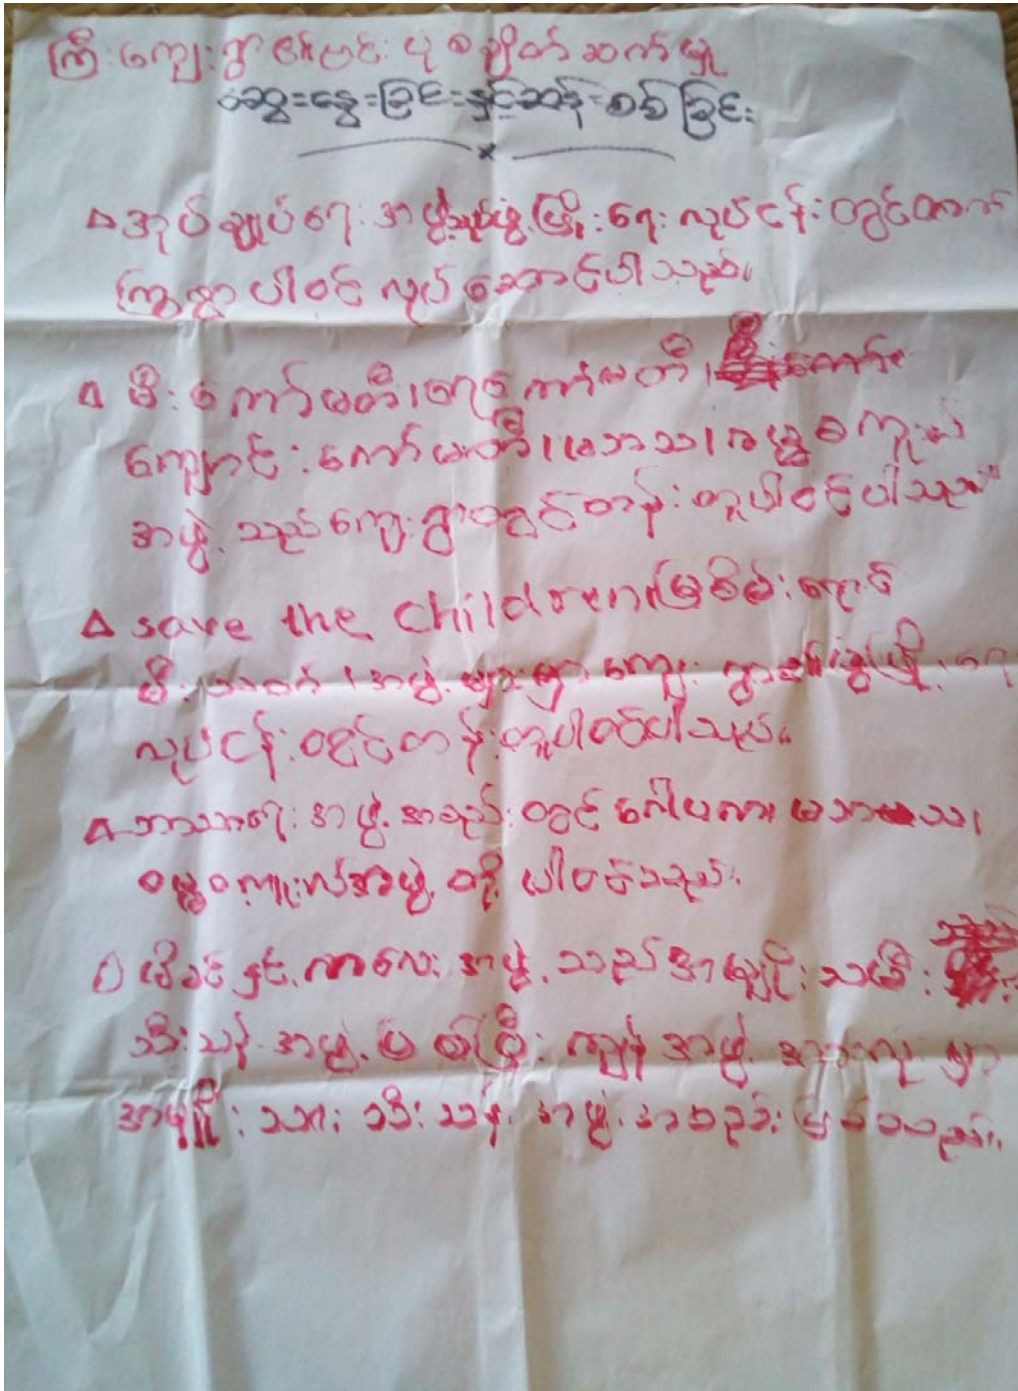 ကြီးကျေးရွာ ဗင်းပုံ ချိတ်ဆက်မှု
ဆွေးနွေးခြင်းနှင့်ဆန်းစစ်ခြင်း
အုပ်ချုပ်ရေးအဖွဲ့ ဖွံ့ဖြိုးရေးလုပ်ငန်းတွင်တက်
ကြွစွာပါဝင်လုပ်ဆောင်ပါသည်။
မီးကော်မတီ၊ရေကော်မတီ၊
ကျောင်းကော်မတီ၊မဘသ၊ဓမ္မစကူးလ်
အဖွဲ့သည်ကျေးရွာတွင်တန်းတူပါဝင်ပါသည်။
save the children၊မြစိမ်းရောင်
မီး အဖွဲ့များမှာ ကျေးရွာဖွံ့ဖြိုးရေး
လုပ်ငန်းတွင်တန်းတူပါဝင်ပါသည်။
ဘာသာရေးအဖွဲ့အစည်းတွင်ဂေါပက၊မဘသ၊
ဓမ္မစကူးလ်အဖွဲ့တို့ပါဝင်သည်။
မိခင်နှင့်ကလေးအဖွဲ့သည်အမျိုးသမီး
သီးသန့်အဖွဲ့ဖြစ်ပြီးကျန်အဖွဲ့အားလုံးမှာ
အမျိုးသားသီးသန့်အဖွဲ့အစည်းဖြစ်သည်။